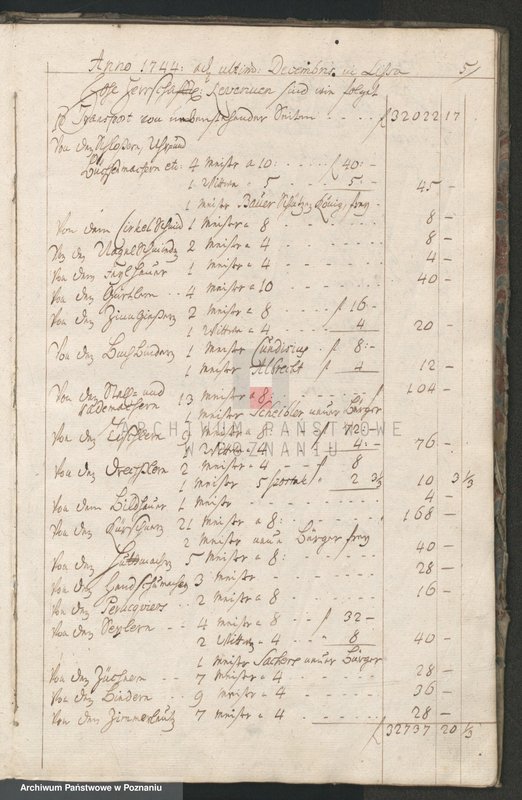 Anno 1744: auf ultimo: Decembris in Lissa 51
Revenuen sind wie folget
Transport von umbenstehender Seiten - - - 32022 17
Von den Schlossern, Uhr und
Büchsenmachern etc. 4 Meister a 10: - - - 40:-
1 Wittwe " 5 - - - 5:- 45 -
1 Meister Bauer Schützen König, frey
Von dem Cirkelschmid 1 Meister a 8 - - - 8 -
Von den Nagelschmieden 2 Meister a 4 - - - 8 -
Von dem 1 Meister a 4 - - - 4 -
Von den Gürtlern 4 Meister a 10 - - - 40 -
Von den Zinn Gießern 2 Meister a 8 16 -
1 Wittwe a 4 4 20 -
Von den Buchbindern 1 Meister 8:-
1 Meister Albrecht 4 12 -
Von den Stell- und
Rademachern 13 Meister a 8: - - - 104 -
1 Meister Scheibler neuer Bürger
Von den Tischlern 9 Meister a 8 72 -
1 Wittwe a 4 4:- 76 -
Von den Drechslern 2 Meister a 4 8
1 Meister 5 2 3⅓ 10 3⅓
Von dem Bildhauer 1 Meister - - - 4 -
Von den Kürschnern 21 Meister a 8: - - - 168 -
2 Meister neue Bürger frey
Von den Huttmachern 5 Meister a 8: - - - 40 -
Von den Handschumachern 3 Meister - - - 28 -
Von den Peruquiers 2 Meister a 8 - - - 16 -
Von den Seylern 4 Meister a 8 32 -
2 Wittwen a 4 8 40 -
1 Meister neuer Bürger
Von den 7 Meister a 4 - - - 28 -
Von den Bindern 9 Meister a 4 - - - 36 -
Von den Zimmerleuten 7 Meister a 4 28 -
32737 20⅓
ARCHIWUM PAŃSTWOWE
W POZNANIU
Archiwum Państwowe w Poznaniu